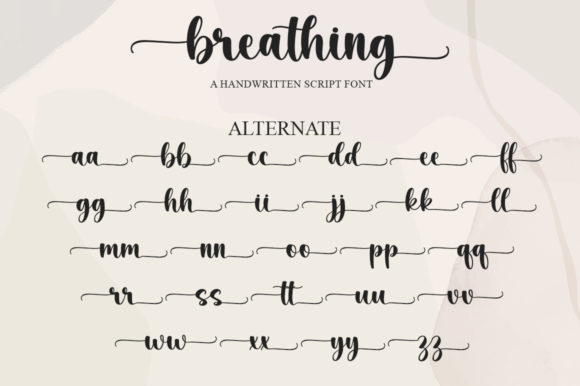 breathing
A HANDWRITTEN SCRIPT FONT
ALTERNATE
aa bb cc dd ee ff
gg hh ii jj kk ll
mm nn oo pp qq
rr ss tt uu vv
ww xx yy zz